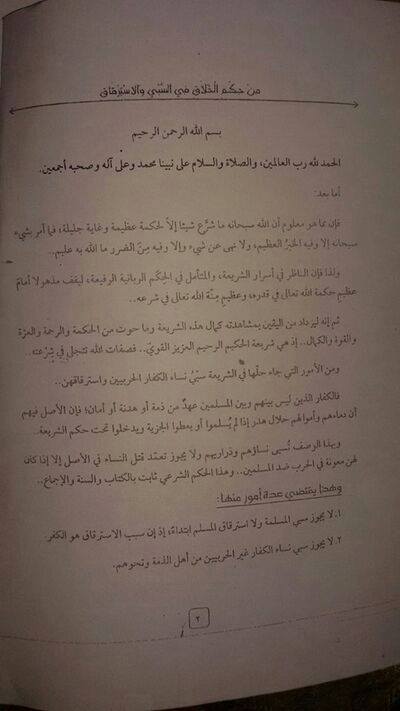 من حِكَم الخلاق في السبي والاسترقاق
بسم الله الرحمن الرحيم
الحمد لله رب العالمين، والصلاة والسلام على نبينا محمد وعلى آله وصحبه أجمعين.
أما بعد:
فإن مما هو معلوم أن الله سبحانه ما شرَّع شيئا إلا لحكمة عظيمة وغاية جليلة، فما أمر بشيء
سبحانه إلا وفيه الخير العظيم، ولا نهى عن شيء إلا وفيه مِنَ الضرر ما الله به عليم..
ولذا فإن الناظر في أسرار الشريعة، والمتأمل في الحِكَم الربانية الرفيعة، ليقف مذهولا أمام
عظيم حكمة الله تعالى في قدره، وعظيم مِنَّة الله تعالى في شرعه..
ثم إنه ليزداد من اليقين بمشاهدته كمال هذه الشريعة وما حوت من الحكمة والرحمة والعزة
والقوة والكمال.. إذ هي شريعة الحكيم الرحيم العزيز القويّ.. فصفات الله تتجلى في شِرْعته.
ومن الأمور التي جاء حلّها في الشريعة سبْيُ نساء الكفار الحربيين واسترقاقهن..
فالكفار الذين ليس بينهم وبين المسلمين عهدٌ من ذمة أو هدنة أو أمان؛ فإن الأصل فيهم
أن دماءهم وأموالهم حلال هدر إذا لم يُسلموا أو يعطوا الجزية ويدخلوا تحت حكم الشريعة..
وبهذا الوصف تُسبى نساؤهم وذراريهم ولا يجوز تعمّد قتل النساء في الأصل إلا إذا كان
لهن معونة في الحرب ضد المسلمين.. وهذا الحكم الشرعي ثابت بالكتاب والسنة والإجماع..
وهذا يقتضي عدة أمور منها:
١. لا يجوز سبي المسلمة ولا استرقاق المسلم ابتداءً، إذ إن سبب الاسترقاق هو الكفر.
٢. لا يجوز سبي نساء الكفار غير الحربيين من أهل الذمة ونحوهم.
٢